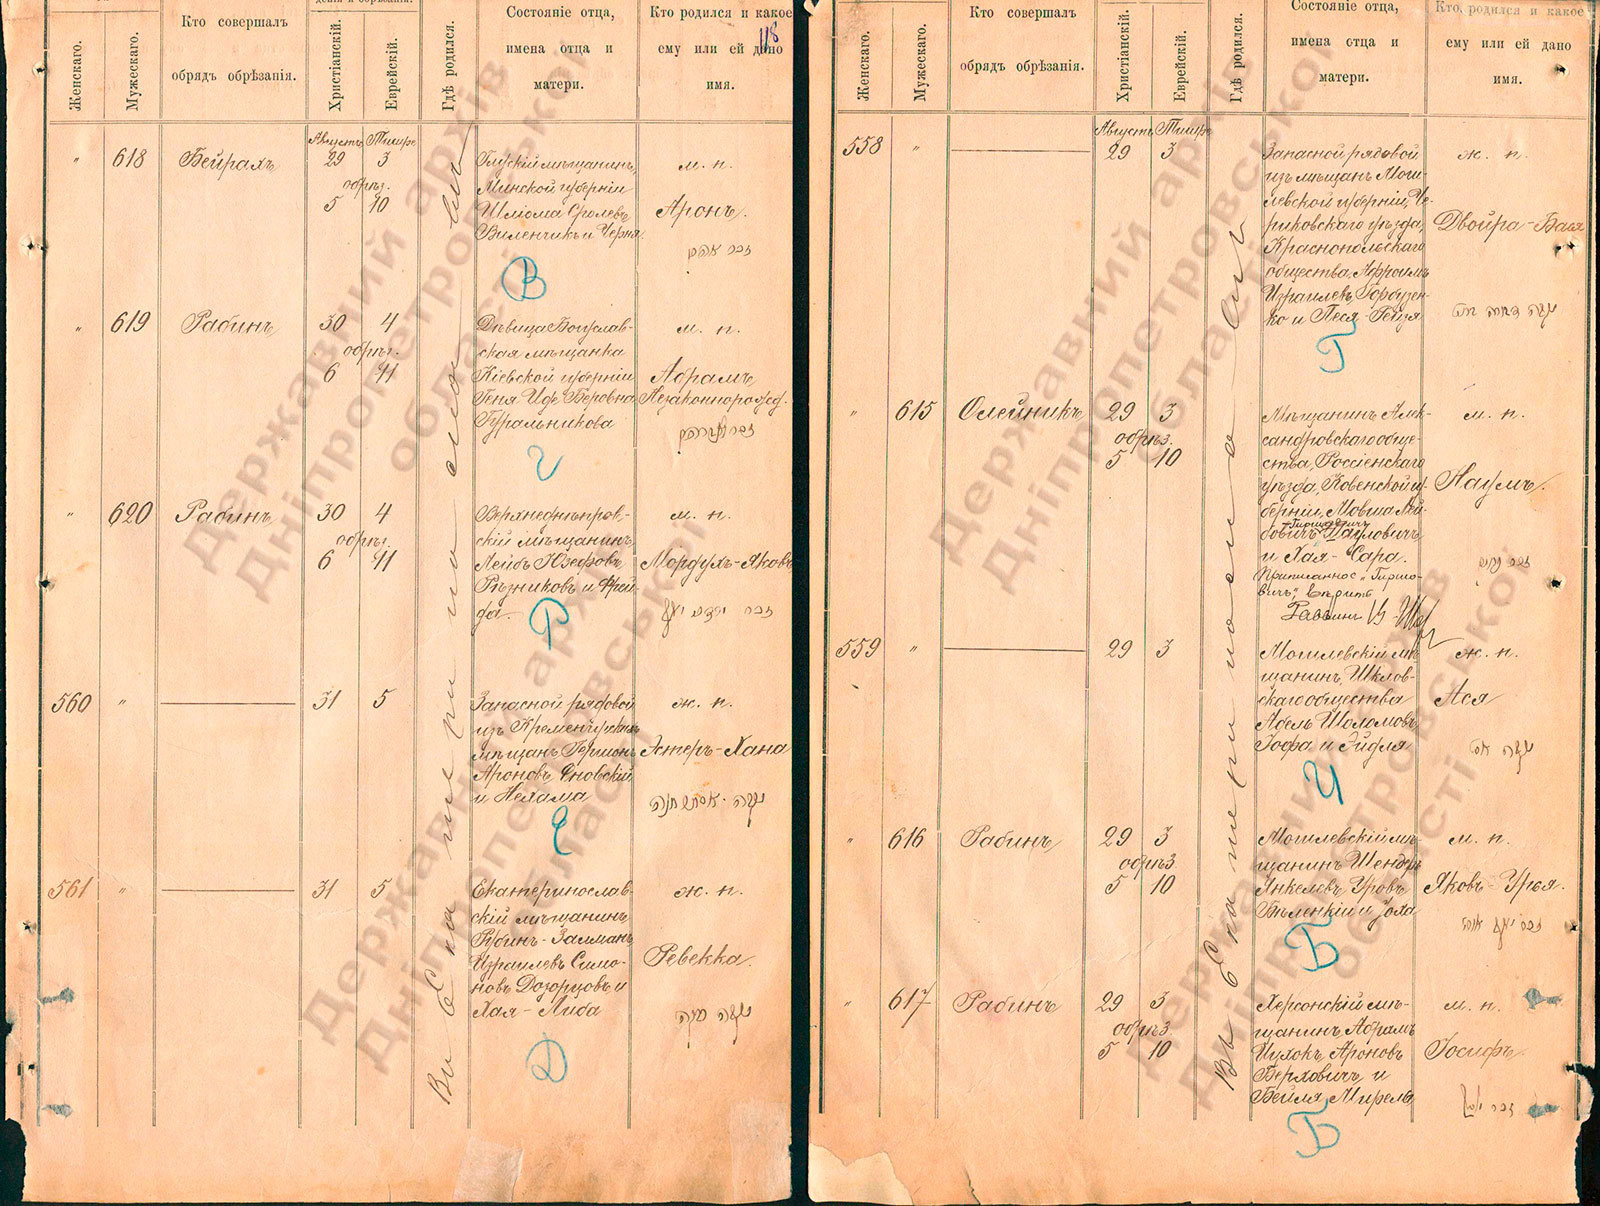 Женскаго.
Мужескаго.
Кто совершалъ
обрядъ обрѣзанія.
Христіанскій.
Еврейскій.
Гдѣ родился.
Состояніе отца,
имена отца и
матери.
Кто родился и какое
ему или ей дано
имя.
118
Августъ Тишре
" 618 Бейрахъ 29 3
обрѣз.
5 10
Глускій мѣщанинъ,
Минской губерніи
Шліома Сролевъ
Виленчикъ и Черня
м. п.
Аронъ.
זכר אהרן
В
" 619 Рабинъ 30 4
обрѣз.
6 11
Дѣвица Богуслав-
ская мѣщанка
Кіевской губерніи
Геня Иде Беровна
Гуральникова
м. п.
Абрамъ
Незаконнорожд.
זכר אברהם
Г
" 620 Рабинъ 30 4
обрѣз.
6 11
Верхнеднѣпров-
скій мѣщанинъ,
Лейбъ Юзефовъ
Рѣзниковъ и Фрей-
да.
м. п.
Мордухъ-Яковъ
זכר מרדכי יעקב
Р
560 " 31 5
Запасной рядовой
изъ Кременчугскихъ
мѣщанъ Гершонъ
Ароновъ Еновскій
и Нехама
ж. п.
Эстеръ-Хана
נקבה אסתר חנה
Е
561 " 31 5
Екатеринослав-
скій мѣщанинъ
Рубинъ-Залманъ
Израилевъ Симо-
новъ Дозорцовъ и
Хая-Либа
ж. п.
Ревекка.
נקבה רבקה
Д
Въ Екатеринославѣ
Женскаго.
Мужескаго.
Кто совершалъ
обрядъ обрѣзанія.
Христіанскій.
Еврейскій.
Гдѣ родился.
Состояніе отца,
имена отца и
матери.
Кто родился и какое
ему или ей дано
имя.
Августъ Тишре
558 " 29 3
Запасной рядовой
изъ мѣщанъ Моги-
левской губерніи, Че-
риковскаго уѣзда,
Краснопольскаго
общества, Афроимъ
Израилевъ Горбузен-
ко и Песя-Гейзя
ж. п.
Двойра-Бася
Г
" 615 Олейникъ 29 3
обрѣз.
5 10
Мѣщанинъ Алек-
сандровскаго обще-
ства, Россіенскаго
уѣзда, Ковенской гу-
берніи, Мовша Лей-
Гиршовичъ
бовичъ
и Хая-Сара.
Приписанное "Гиршо-
вичъ", вѣрить
Раввинъ
м. п.
Наумъ.
זכר נחום
559 " 29 3
Могилевскій мѣ-
щанинъ, Шклов-
скаго общества
Абель Шоломовъ
Іофа и Эйдля
ж. п.
Ася
נקבה אסי
И
" 616 Рабинъ 29 3
обрѣз.
5 10
Могилевскій мѣ-
щанинъ Шендеръ
Янкелевъ Уровъ
Бѣленкій и Іоха
м. п.
Яковъ-Урья.
זכר יעקב אורי
Б
" 617 Рабинъ 29 3
обрѣз.
5 10
Херсонскій мѣ-
щанинъ Абрамъ
Ицхокъ Ароновъ
Берховичъ и
Бейля Мирель
м. п.
Іосифъ.
זכר יוסף
Б
Въ Екатеринославѣ
Державний архів
Дніпропетровської
області
Державний архів
Дніпропетровської
області
Державний архів
Дніпропетровської
області
Державний архів
Дніпропетровської
області